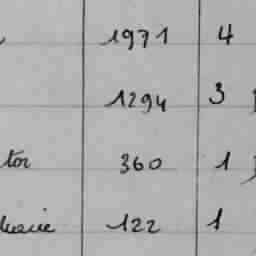 1971 4
1294 3
tor 360 1
122 1